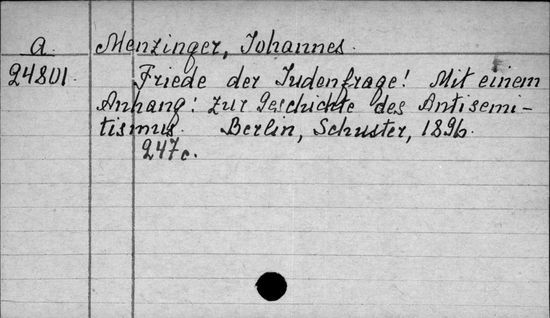 A. Menzinger, Johannes.
24801. Friede der Judenfrage! Mit einem
Anhang: Zur Geschichte des Antisemi-
tismus. Berlin, Schuster, 1896.
247c.